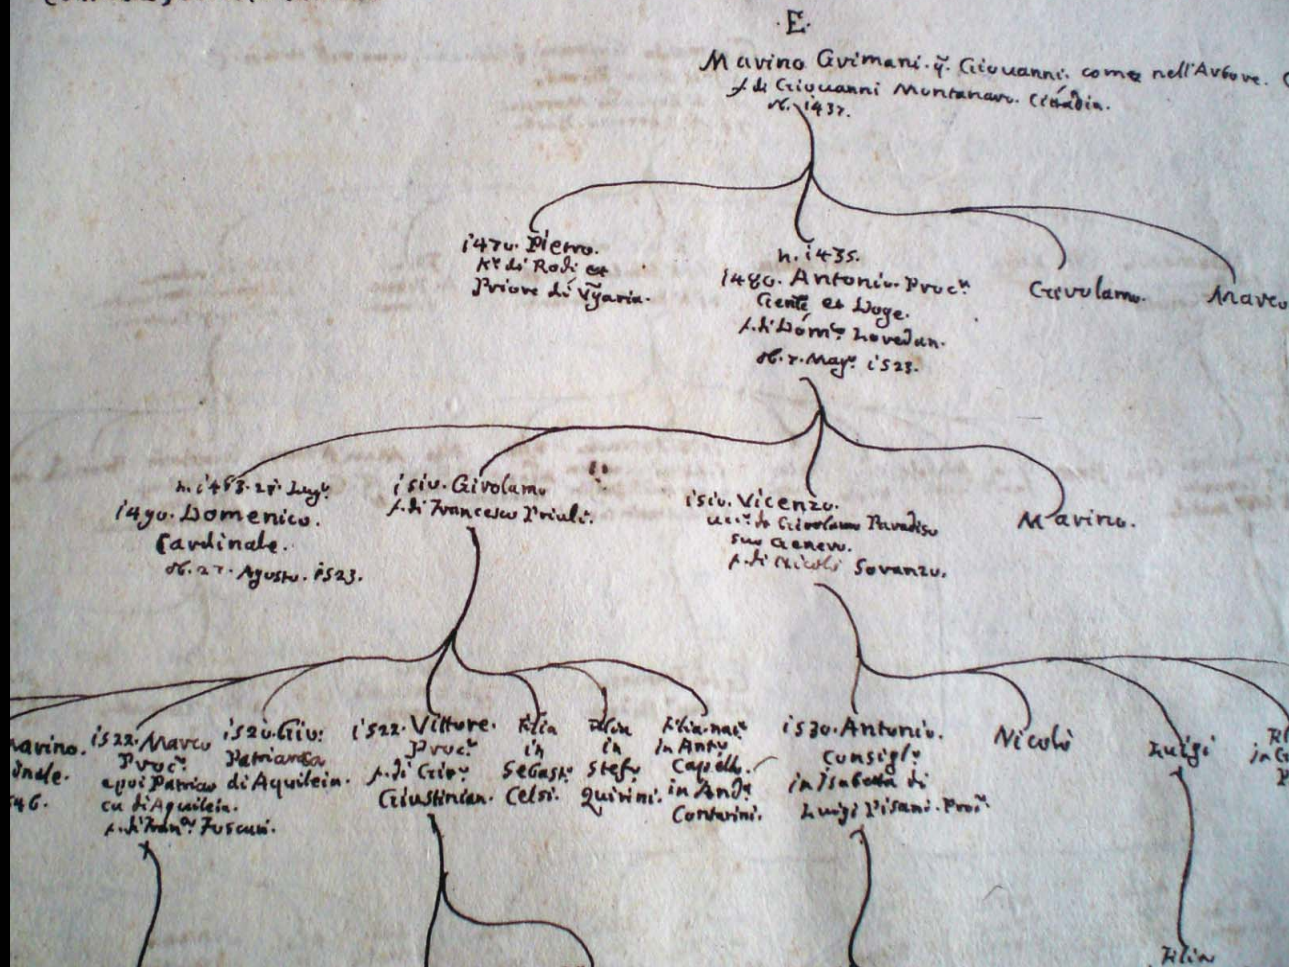 .E.
Marino Grimani. q. Giouanni. come nell'Arbore.
f. di Giouanni Montanaro. Cittadin.
ob. 1437.
1470. Pietro.
Kr. di Rodi et
Priore di Vgaria.
n. 1435.
1480. Antonio. Procr.
Genle et Doge.
f. di Domco Loredan.
ob. 7. Mago. 1523.
Girolamo.
Marco
1490. Domenico.
Cardinale.
ob. 27. Agosto. 1523.
1510. Girolamo
f. di Francesco Priuli.
1510. Vicenzo.
Girolamo Paradiso
suo Genero.
f. di Nicolò Soranzo.
Marino.
arino.
dnale.
546.
1522. Marco
Procr.
e poi Patriar
ca di Aquileia.
f. di Francco Foscari.
1520. Gio:
Patriarca
di Aquileia.
1522. Vittore.
Procr.
f. di Giro.
Giustinian.
Filia
in
Sebasto.
Celsi.
Filia
in
Stefo
Quirini.
Filia
in Anto
Capello.
in Anda.
Contarini.
1530. Antonio.
Consiglo.
in Isabetta di
Luigi Pisani. Procr.
Nicolò
Luigi
Filia